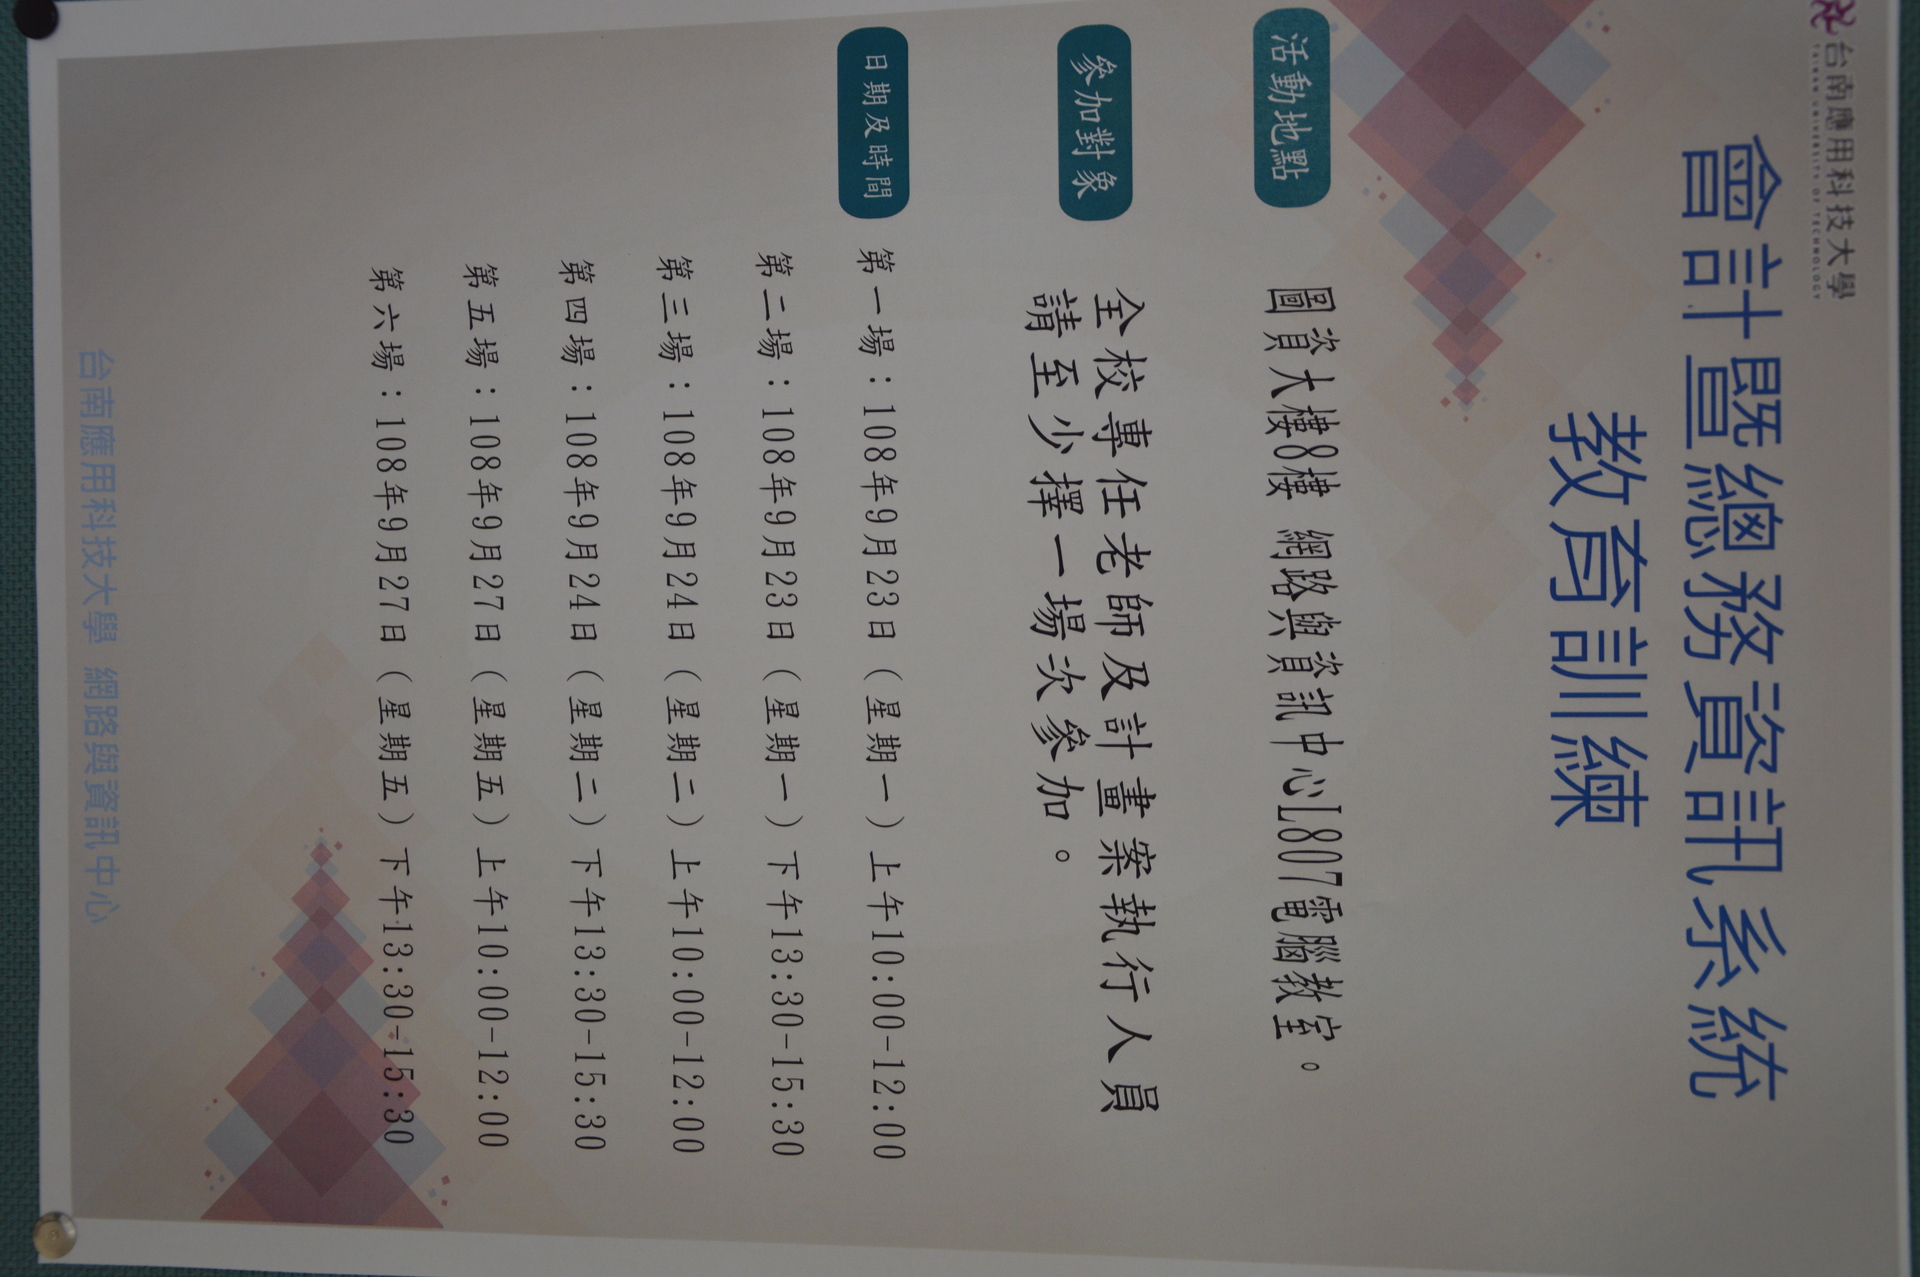 台南應用科技大學
TAINAN UNIVERSITY OF TECHNOLOGY
會計暨總務資訊系統
教育訓練
活動地點
圖資大樓8樓 網路與資訊中心L807電腦教室。
參加對象
全校專任老師及計畫案執行人員
請至少擇一場次參加。
日期及時間
第一場：108年9月23日（星期一）上午10:00-12:00
第二場：108年9月23日（星期一）下午13:30-15:30
第三場：108年9月24日（星期二）上午10:00-12:00
第四場：108年9月24日（星期二）下午13:30-15:30
第五場：108年9月27日（星期五）上午10:00-12:00
第六場：108年9月27日（星期五）下午13:30-15:30
台南應用科技大學 網路與資訊中心